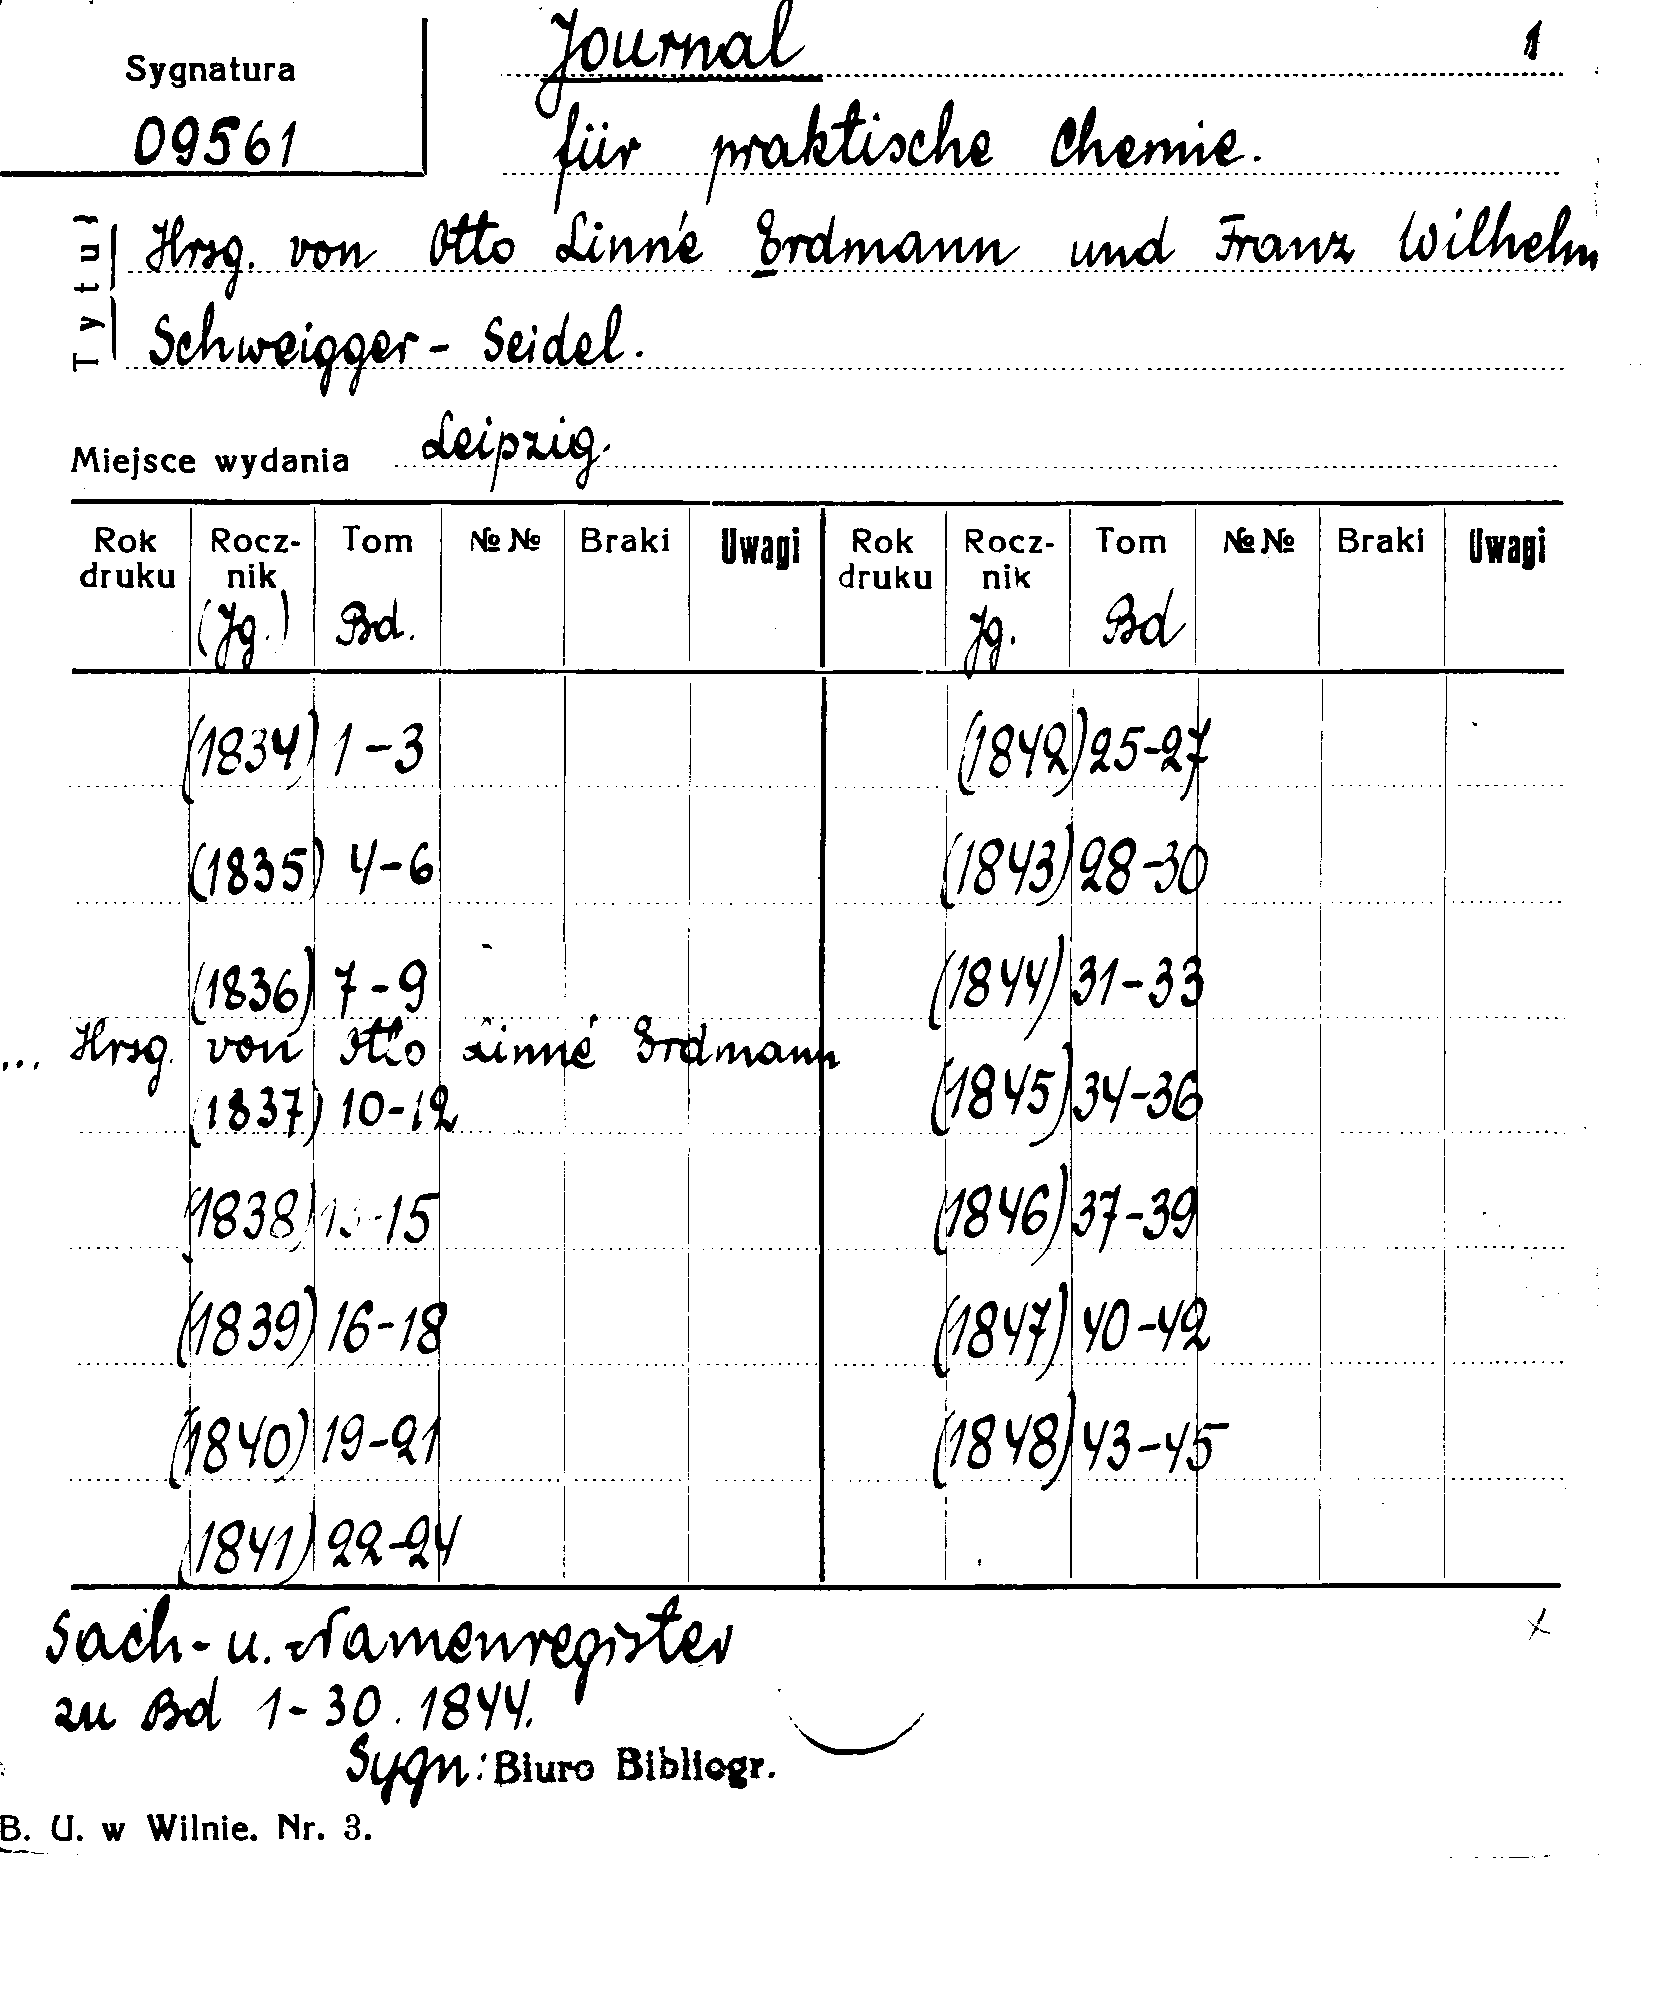 Sygnatura
09561
Journal 1
für praktische Chemie.
Tytuł
Hrsg. von Otto Linné Erdmann und Franz Wilhelm
Schweigger - Seidel.
Miejsce wydania Leipzig.
Rok druku Rocz-nik (Jg.) Tom Bd. №№ Braki Uwagi Rok druku Rocz-nik Jg. Tom Bd №№ Braki Uwagi
(1834) 1-3 (1842) 25-27
(1835) 4-6 (1843) 28-30
(1836) 7-9 (1844) 31-33
... Hrsg. von Otto Linné Erdmann
(1837) 10-12 (1845) 34-36
(1838) 13-15 (1846) 37-39
(1839) 16-18 (1847) 40-42
(1840) 19-21 (1848) 43-45
(1841) 22-24
Sach- u. Namenregister x
zu Bd 1-30. 1844.
Sygn: Biuro Bibliogr.
B. U. w Wilnie. Nr. 3.